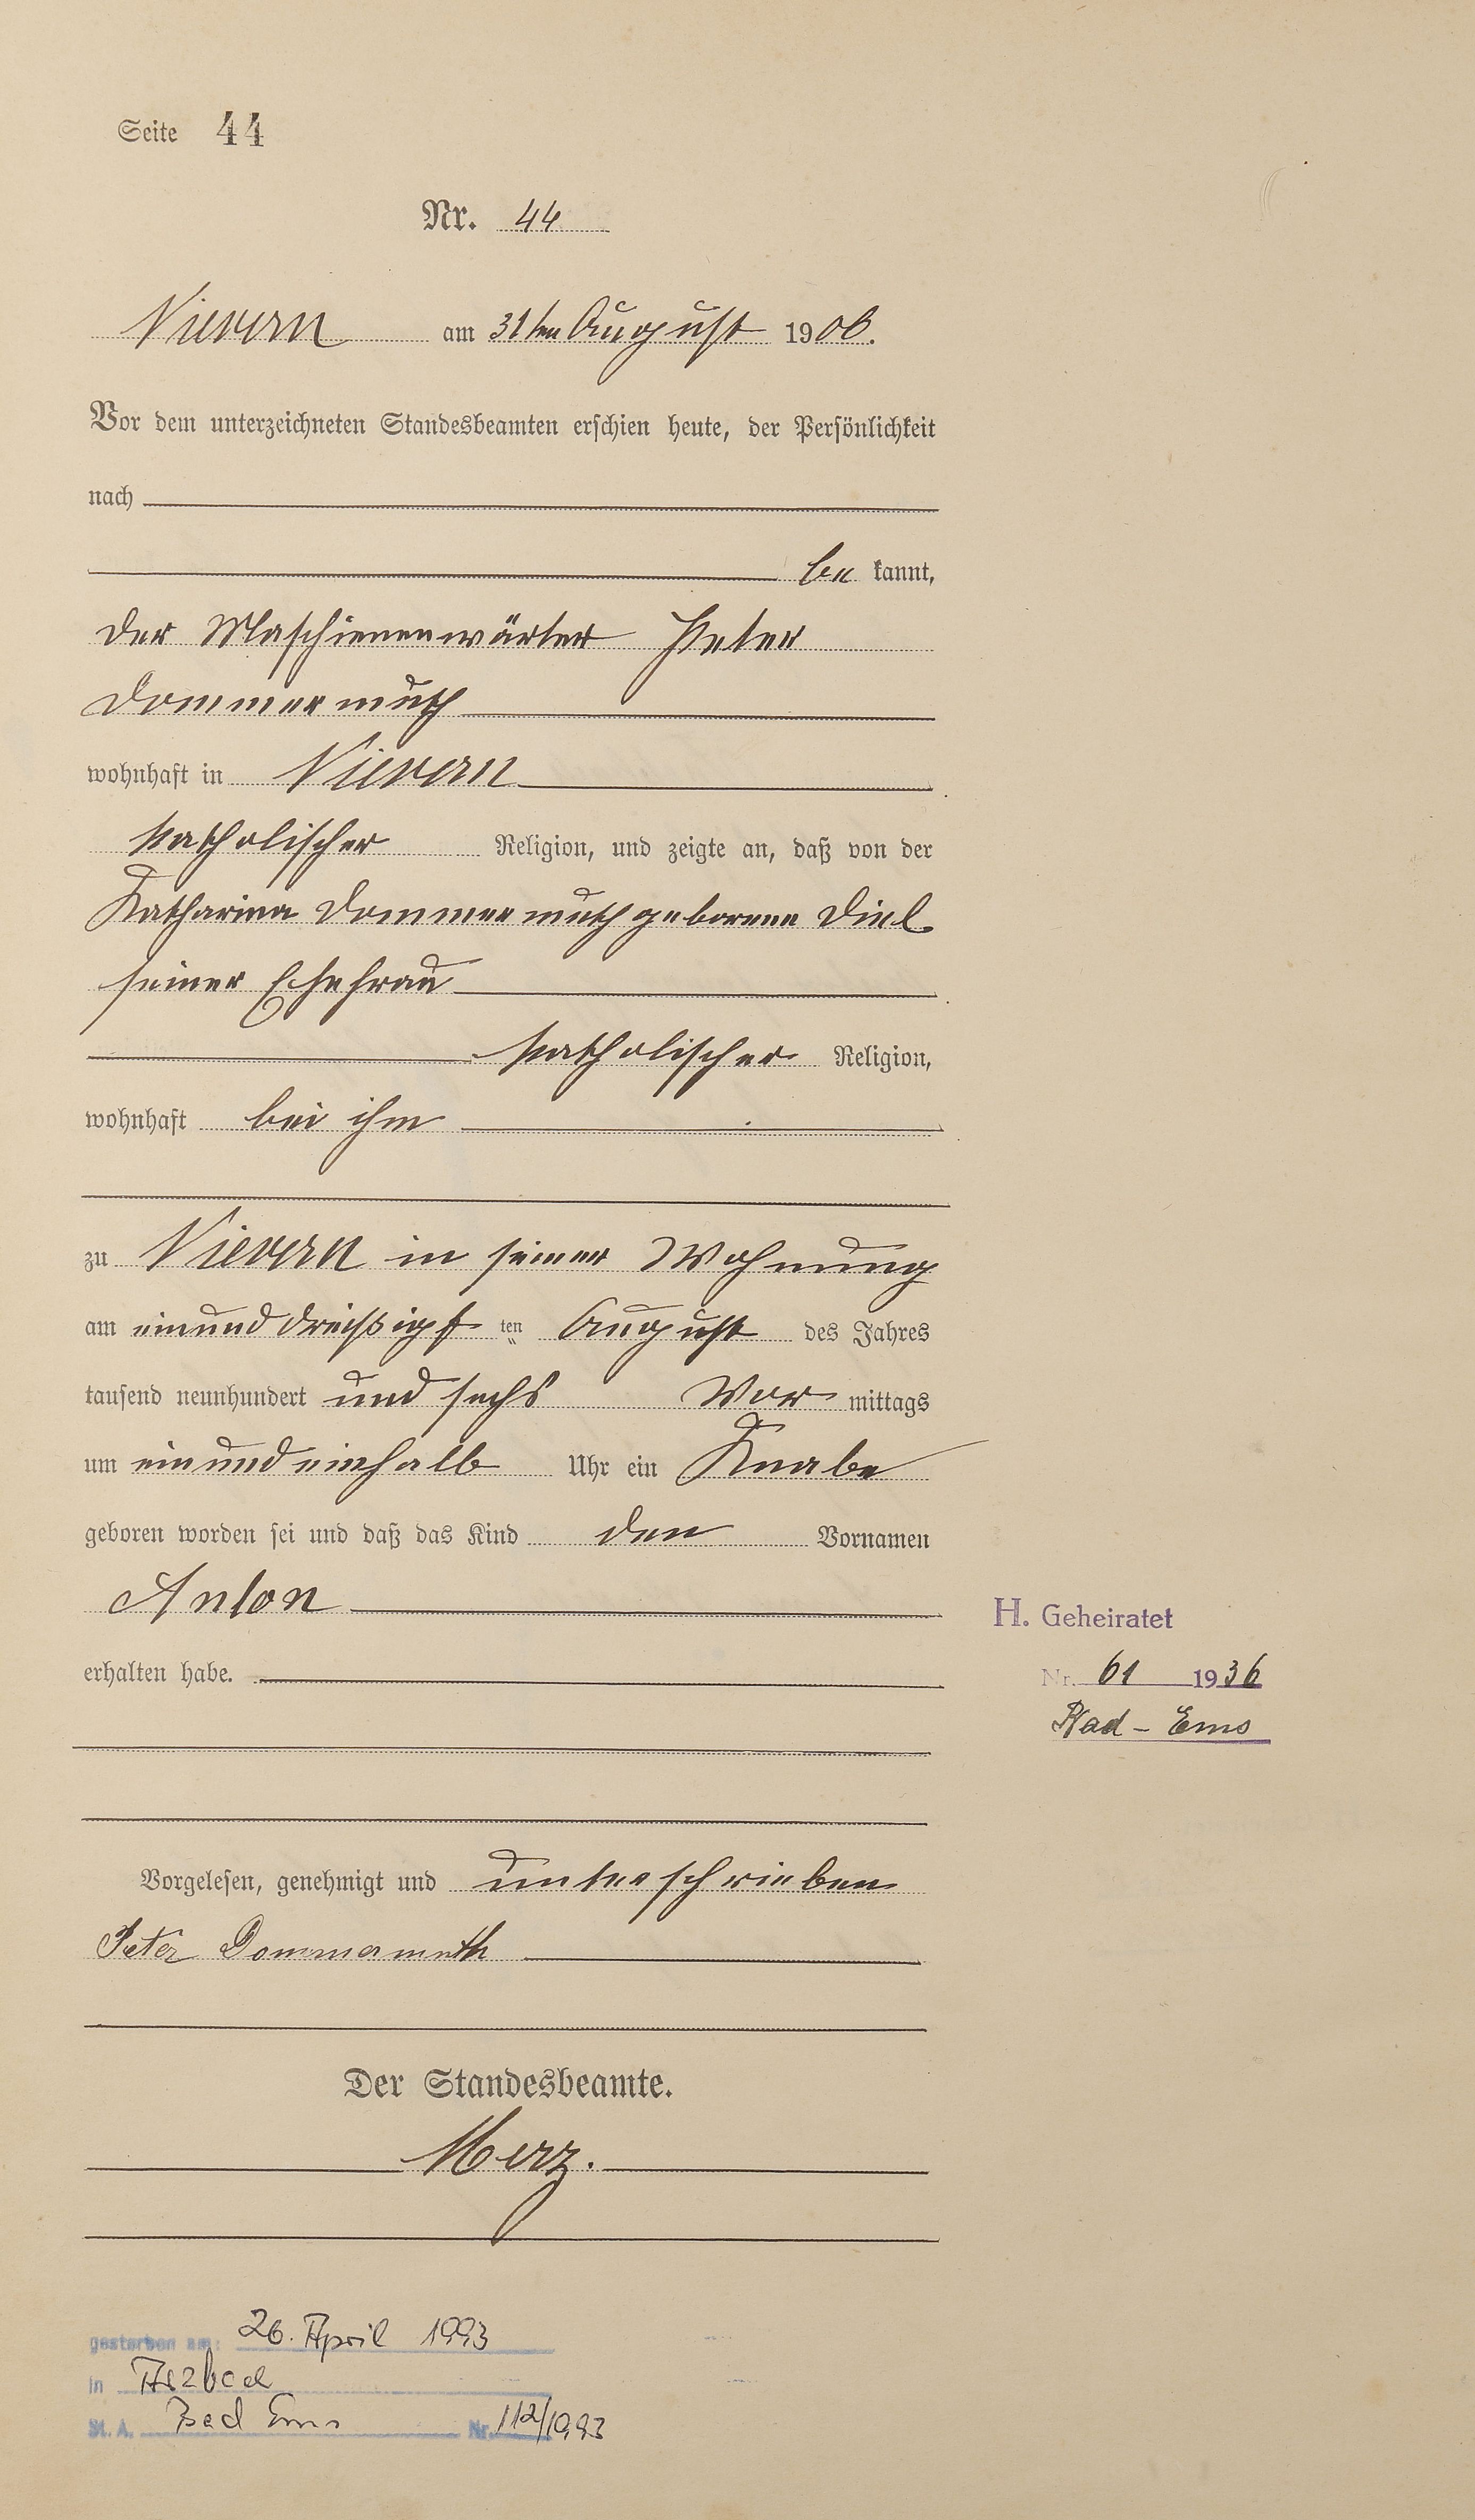 Seite 44
Nr. 44
Nievern am 31ten August 1906.
Vor dem unterzeichneten Standesbeamten erschien heute, der Persönlichkeit
nach
be kannt,
der Maschienenwärter Peter
Dommermuth
wohnhaft in Nievern
katholischer Religion, und zeigte an, daß von der
Katharina Dommermuth geborene Diel
seiner Ehefrau
katholischer Religion,
wohnhaft bei ihm
zu Nievern in seiner Wohnung
am einunddreißigst ten August des Jahres
tausend neunhundert und sechs Vor mittags
um einundeinhalb Uhr ein Knabe
geboren worden sei und daß das Kind den Vornamen
Anton
erhalten habe.
H. Geheiratet
Nr. 61 1936
Bad-Ems
Vorgelesen, genehmigt und unterschrieben
Peter Dommermuth
Der Standesbeamte.
Merz.
gestorben am: 26. April 1993
in Arzbach
St. A. Bad Ems Nr. 112/1993